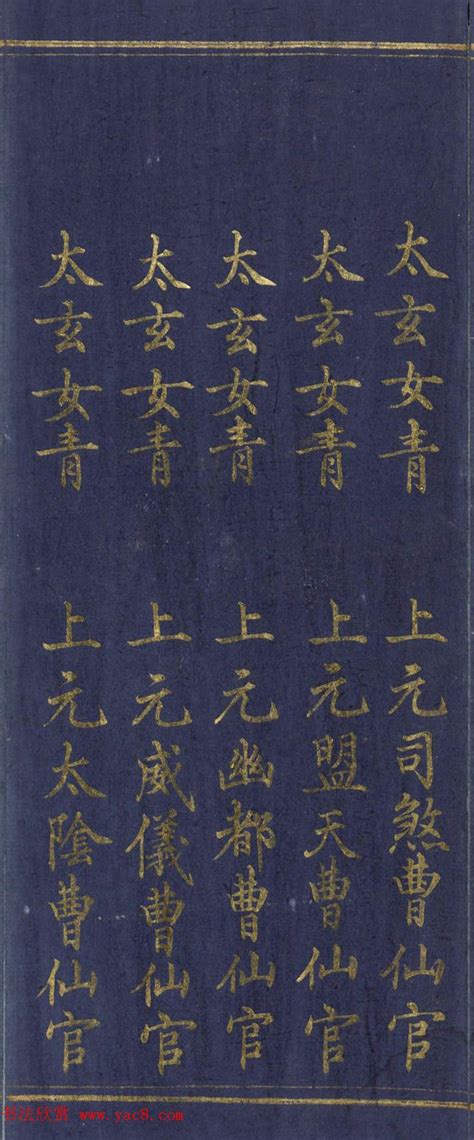 太玄女青 上元司煞曹仙官
太玄女青 上元盟天曹仙官
太玄女青 上元幽都曹仙官
太玄女青 上元威儀曹仙官
太玄女青 上元太陰曹仙官
书法欣赏 www.yac8.com